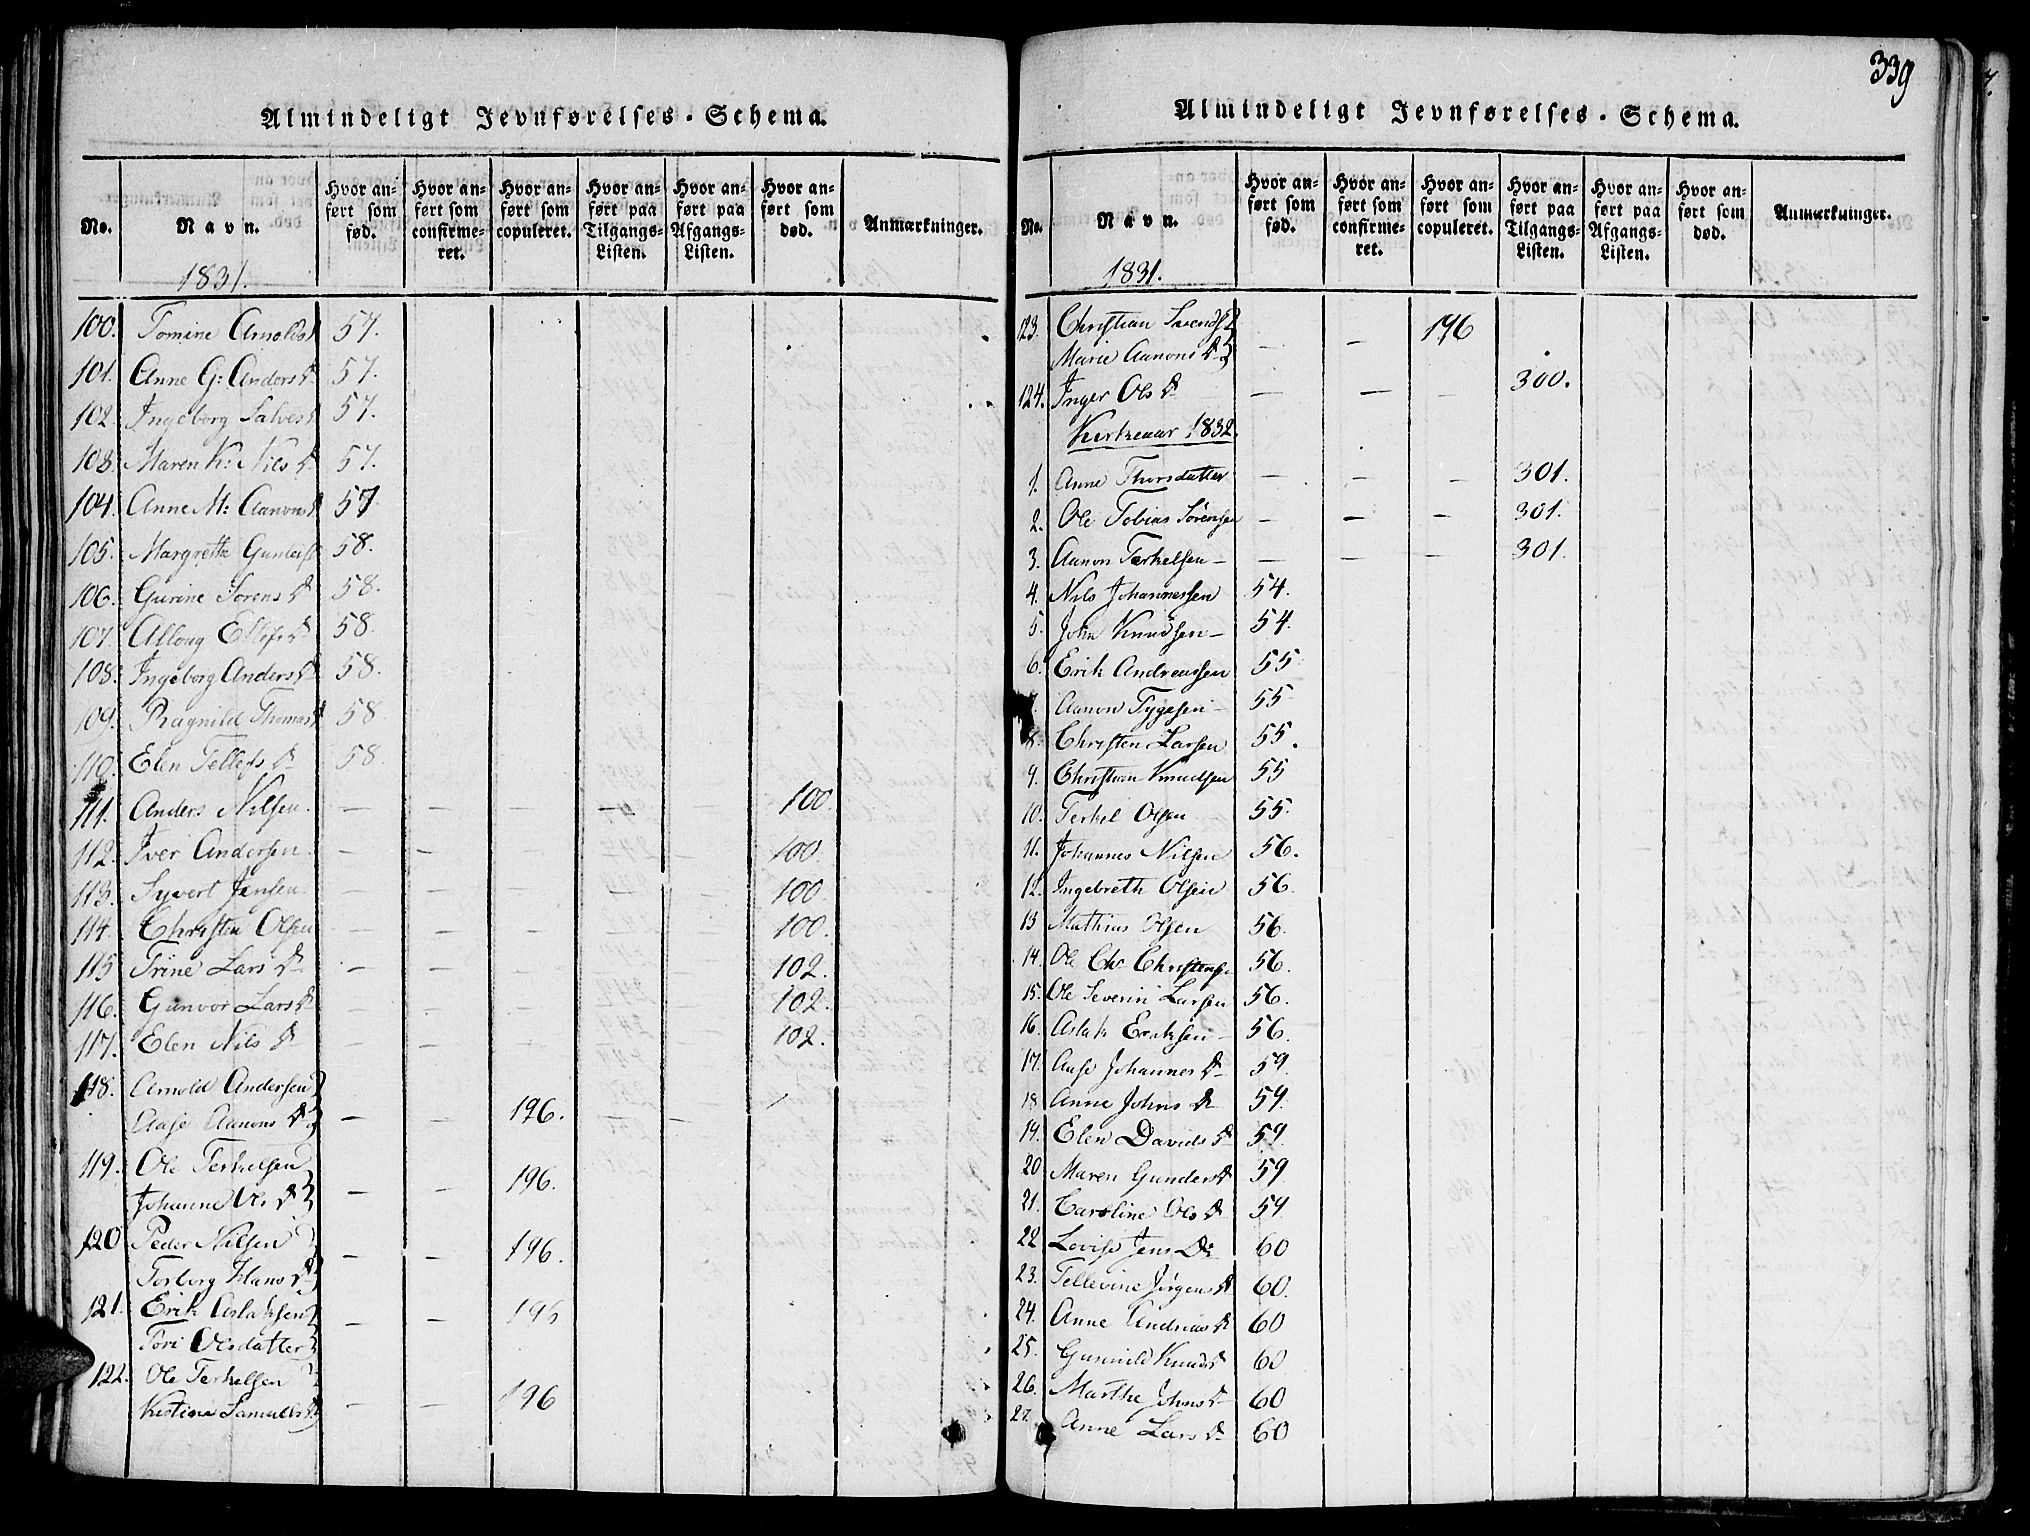 Almindeligt Jevnførelses-Schema.
No. Navn. Hvor anført som fød. Hvor anført som confirmeret. Hvor anført som copuleret. Hvor anført paa Tilgangs-Listen. Hvor anført paa Afgangs-Listen. Hvor anført som død. Anmærkninger.
1831.
100. Tomine Arnolds 57.
101. Anne G: Anders D 57.
102. Ingeborg Salves 57.
103. Maren K: Nils D 57.
104. Anne M: Aanons 57
105. Margrethe 58.
106. Gurine Sørens D 58.
107. D 58.
108. Ingeborg Anders D 58.
109. Ragnild Thomas 58
110. Elen Tellefs D 58.
111. Anders Nilsen — — — — 100.
112. Iver Andersen — — — 100.
113. Syvert Jensen — — — — 100
114. Christen Olsen — — — — 100.
115 Trine Lars D — — 102.
116. Gunvor Lars D — — 102.
117. Elen Nils D — — 102.
118. Arnold Andersen
Aase Aanons D — — 196. —
119. Ole Terkelsen
Johanne Ols D — — 196.
120 Peder Nilsen
Torborg Hans D — — 196.
121. Erik Aslaksen
Tori Olsdatter — — 196
122. Ole Terkelsen
Kistine Samuels D — — 196
339
Almindeligt Jevnførelses-Schema.
No. Navn. Hvor anført som fød. Hvor anført som confirmeret. Hvor anført som copuleret. Hvor anført paa Tilgangs-Listen. Hvor anført paa Afgangs-Listen. Hvor anført som død. Anmærkninger.
1831.
123. Christian Svends
Marie Aanons D — — 196
124. Inger Ols D — — — 300.
Kirkeaar 1832.
1. Anne Thorsdatter — — — 301.
2. Ole Tobias Sørensen — — — 301.
3. Aanon Terkelsen — — — — 301.
4. Nils Johannessen 54.
5. John Knudsen — 54.
6. Erik Andreassen 55
7. Aanon Tygesen — 55
8. Christen Larsen 55.
9. Christian Knudsen 55
10. Terkel Olsen 55.
11. Johannes Nilsen 56.
12. Ingebreth Olsen 56.
13 Mathias Olsen 56.
14. Ole Chr Christens 56.
15. Ole Severin Larsen 56.
16. Aslak Eriksen — 56.
17. Aase Johannes D 59.
18 Anne Johns D 59.
19. Elen Davids D 59.
20 Maren Gunders D 59
21. Caroline Ols D 59
22 Lovise Jens D 60
23. Tellevine Jørgens D 60.
24. Anne Andreas D 60
25. Gunnild Knuds D 60
26. Marthe Johns D 60
27. Anne Lars D 60